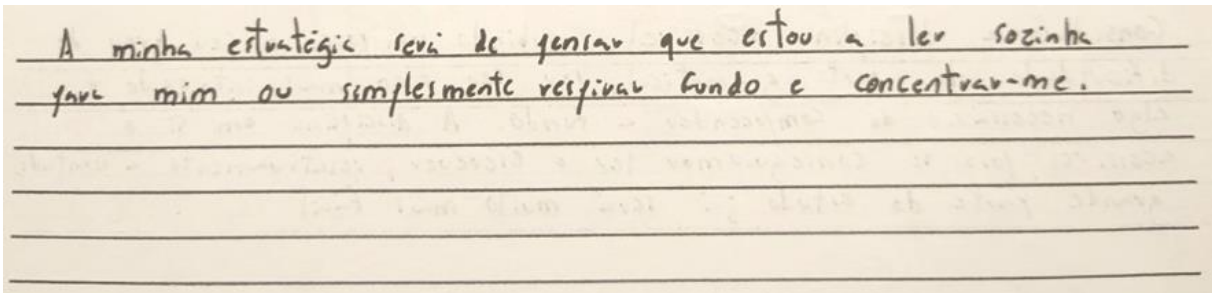 A minha estratégia será de pensar que estou a ler sozinha
para mim ou simplesmente respirar fundo e concentrar-me.